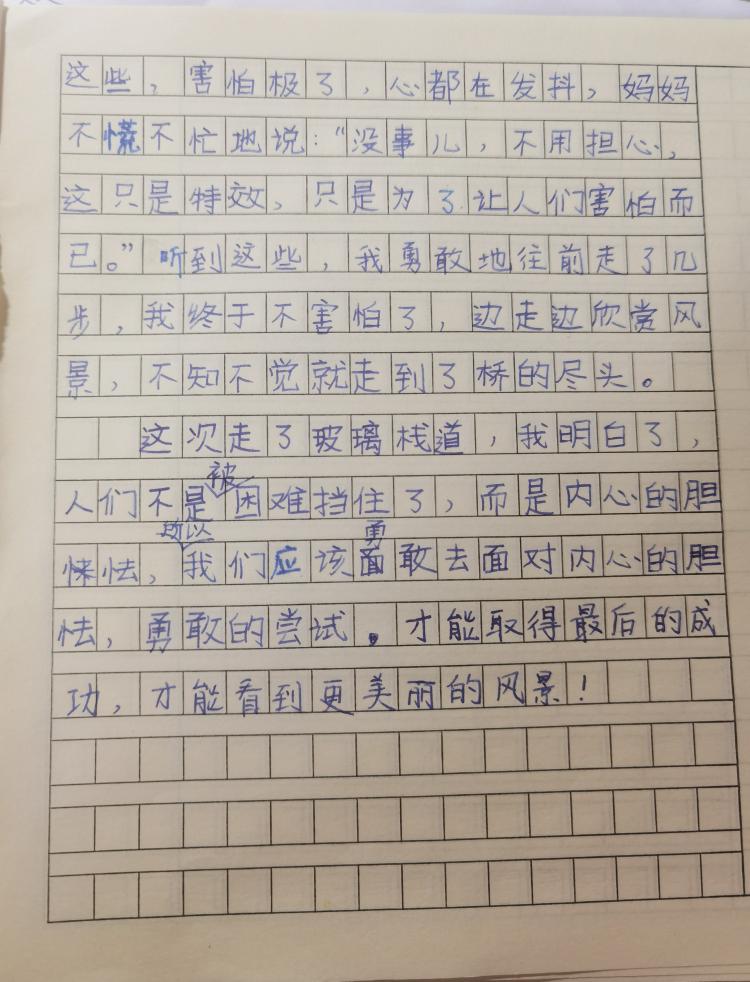 这些，害怕极了，心都在发抖，妈妈
不慌不忙地说：“没事儿，不用担心，
这只是特效，只是为了让人们害怕而
已。”听到这些，我勇敢地往前走了几
步，我终于不害怕了，边走边欣赏风
景，不知不觉就走到了桥的尽头。
这次走了玻璃栈道，我明白了，
人们不是被困难挡住了，而是内心的胆
怯，所以我们应该勇敢去面对内心的胆
怯，勇敢的尝试。才能取得最后的成
功，才能看到更美丽的风景！